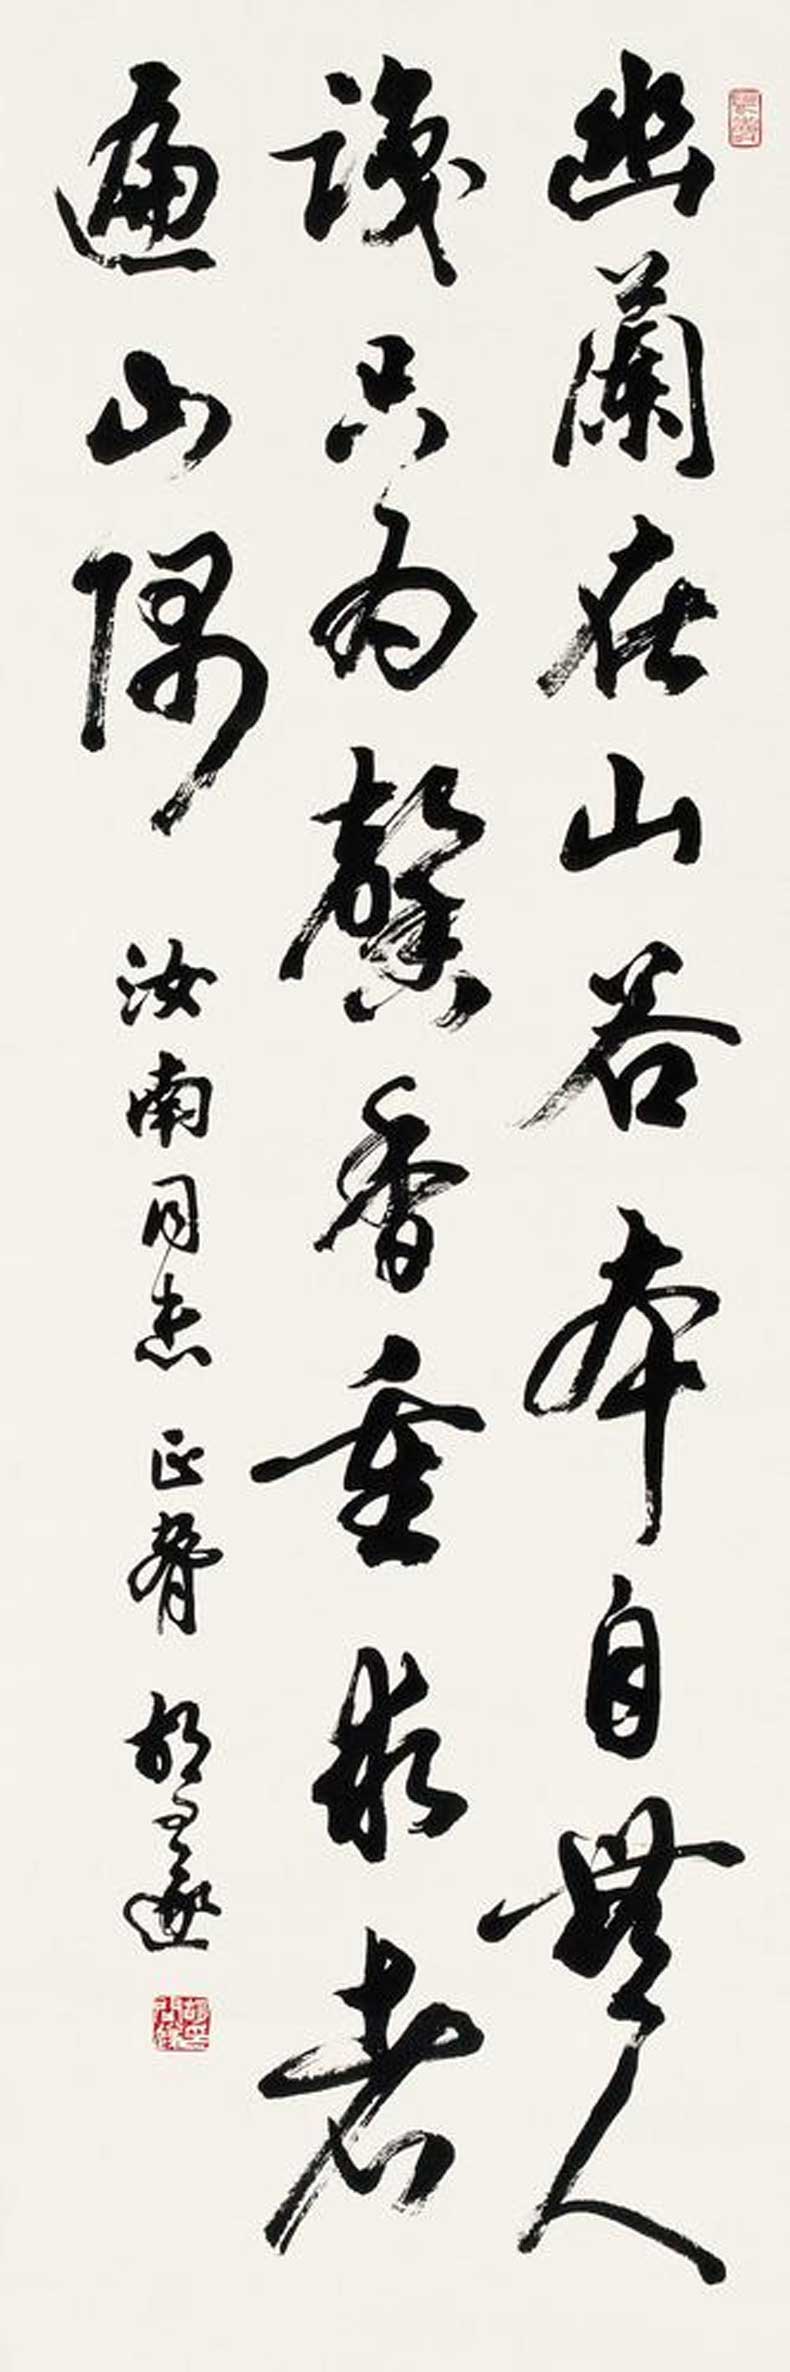 幽蘭在山谷本自無人
識只为馨香重求者
遍山隅 汝南同志 正 胡问遂